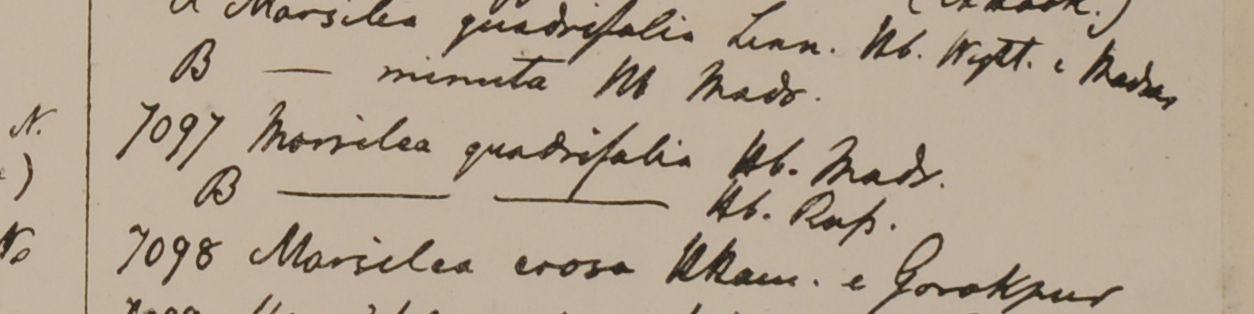 Marsilea quadrifolia Linn. Hb. Wight. e Madras
B — minuta Hb Madr.
N. 7097 Marsilea quadrifolia Hb. Madr.
) B — — Hb. Rup.
No 7098 Marsilea erosa Hham. e Gorakpur